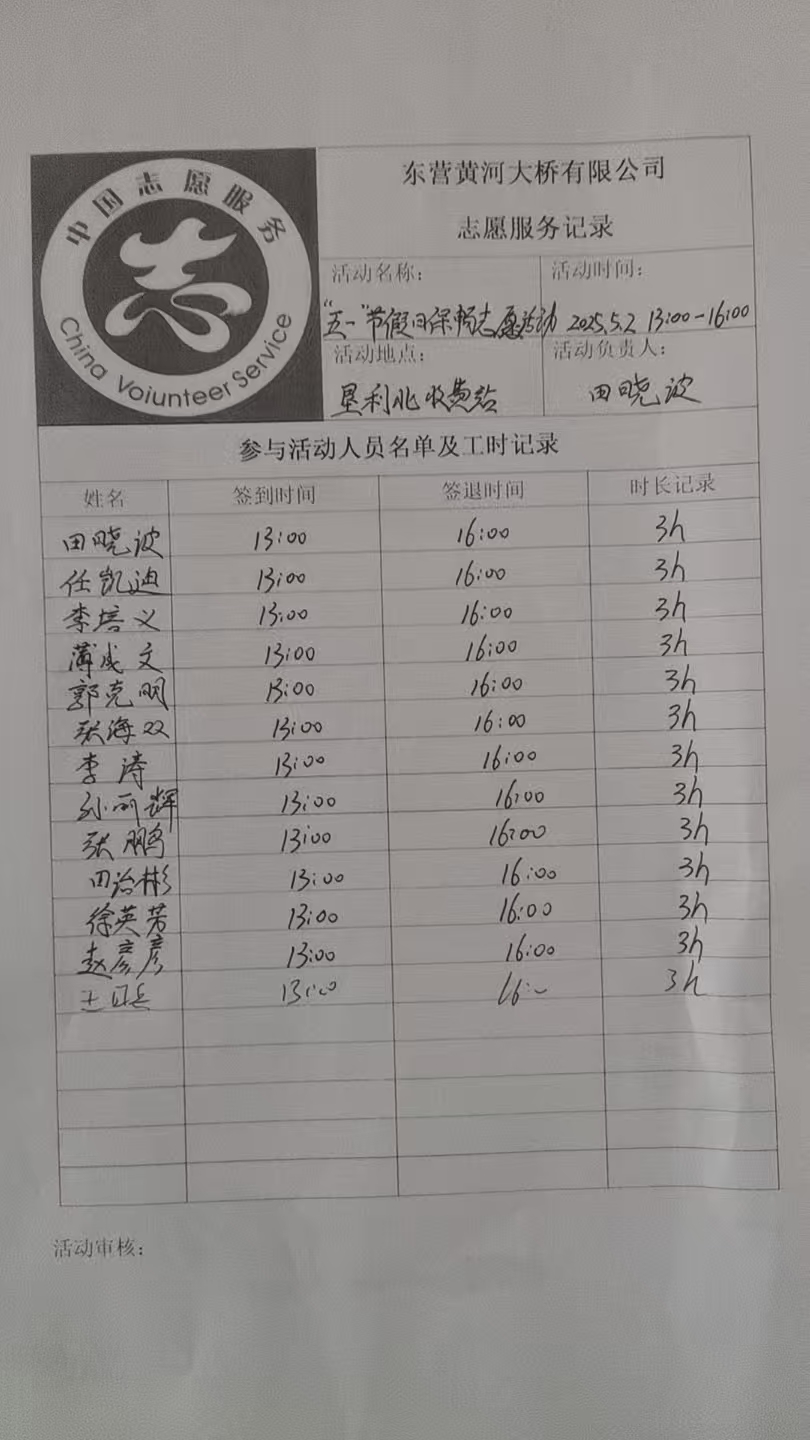 中国志愿服务
志
China Voiunteer Service
东营黄河大桥有限公司
志愿服务记录
活动名称： 活动时间：
“五一”节假日保畅志愿活动 2025.5.2 13:00-16:00
活动地点： 活动负责人：
垦利北收费站 田晓波
参与活动人员名单及工时记录
姓名 签到时间 签退时间 时长记录
田晓波 13:00 16:00 3h
任凯迪 13:00 16:00 3h
李培义 13:00 16:00 3h
薄成文 13:00 16:00 3h
郭克明 13:00 16:00 3h
张海双 13:00 16:00 3h
李涛 13:00 16:00 3h
孙丽辉 13:00 16:00 3h
张鹏 13:00 16:00 3h
田治彬 13:00 16:00 3h
徐英芳 13:00 16:00 3h
赵彦彦 13:00 16:00 3h
13:00 3h
活动审核：